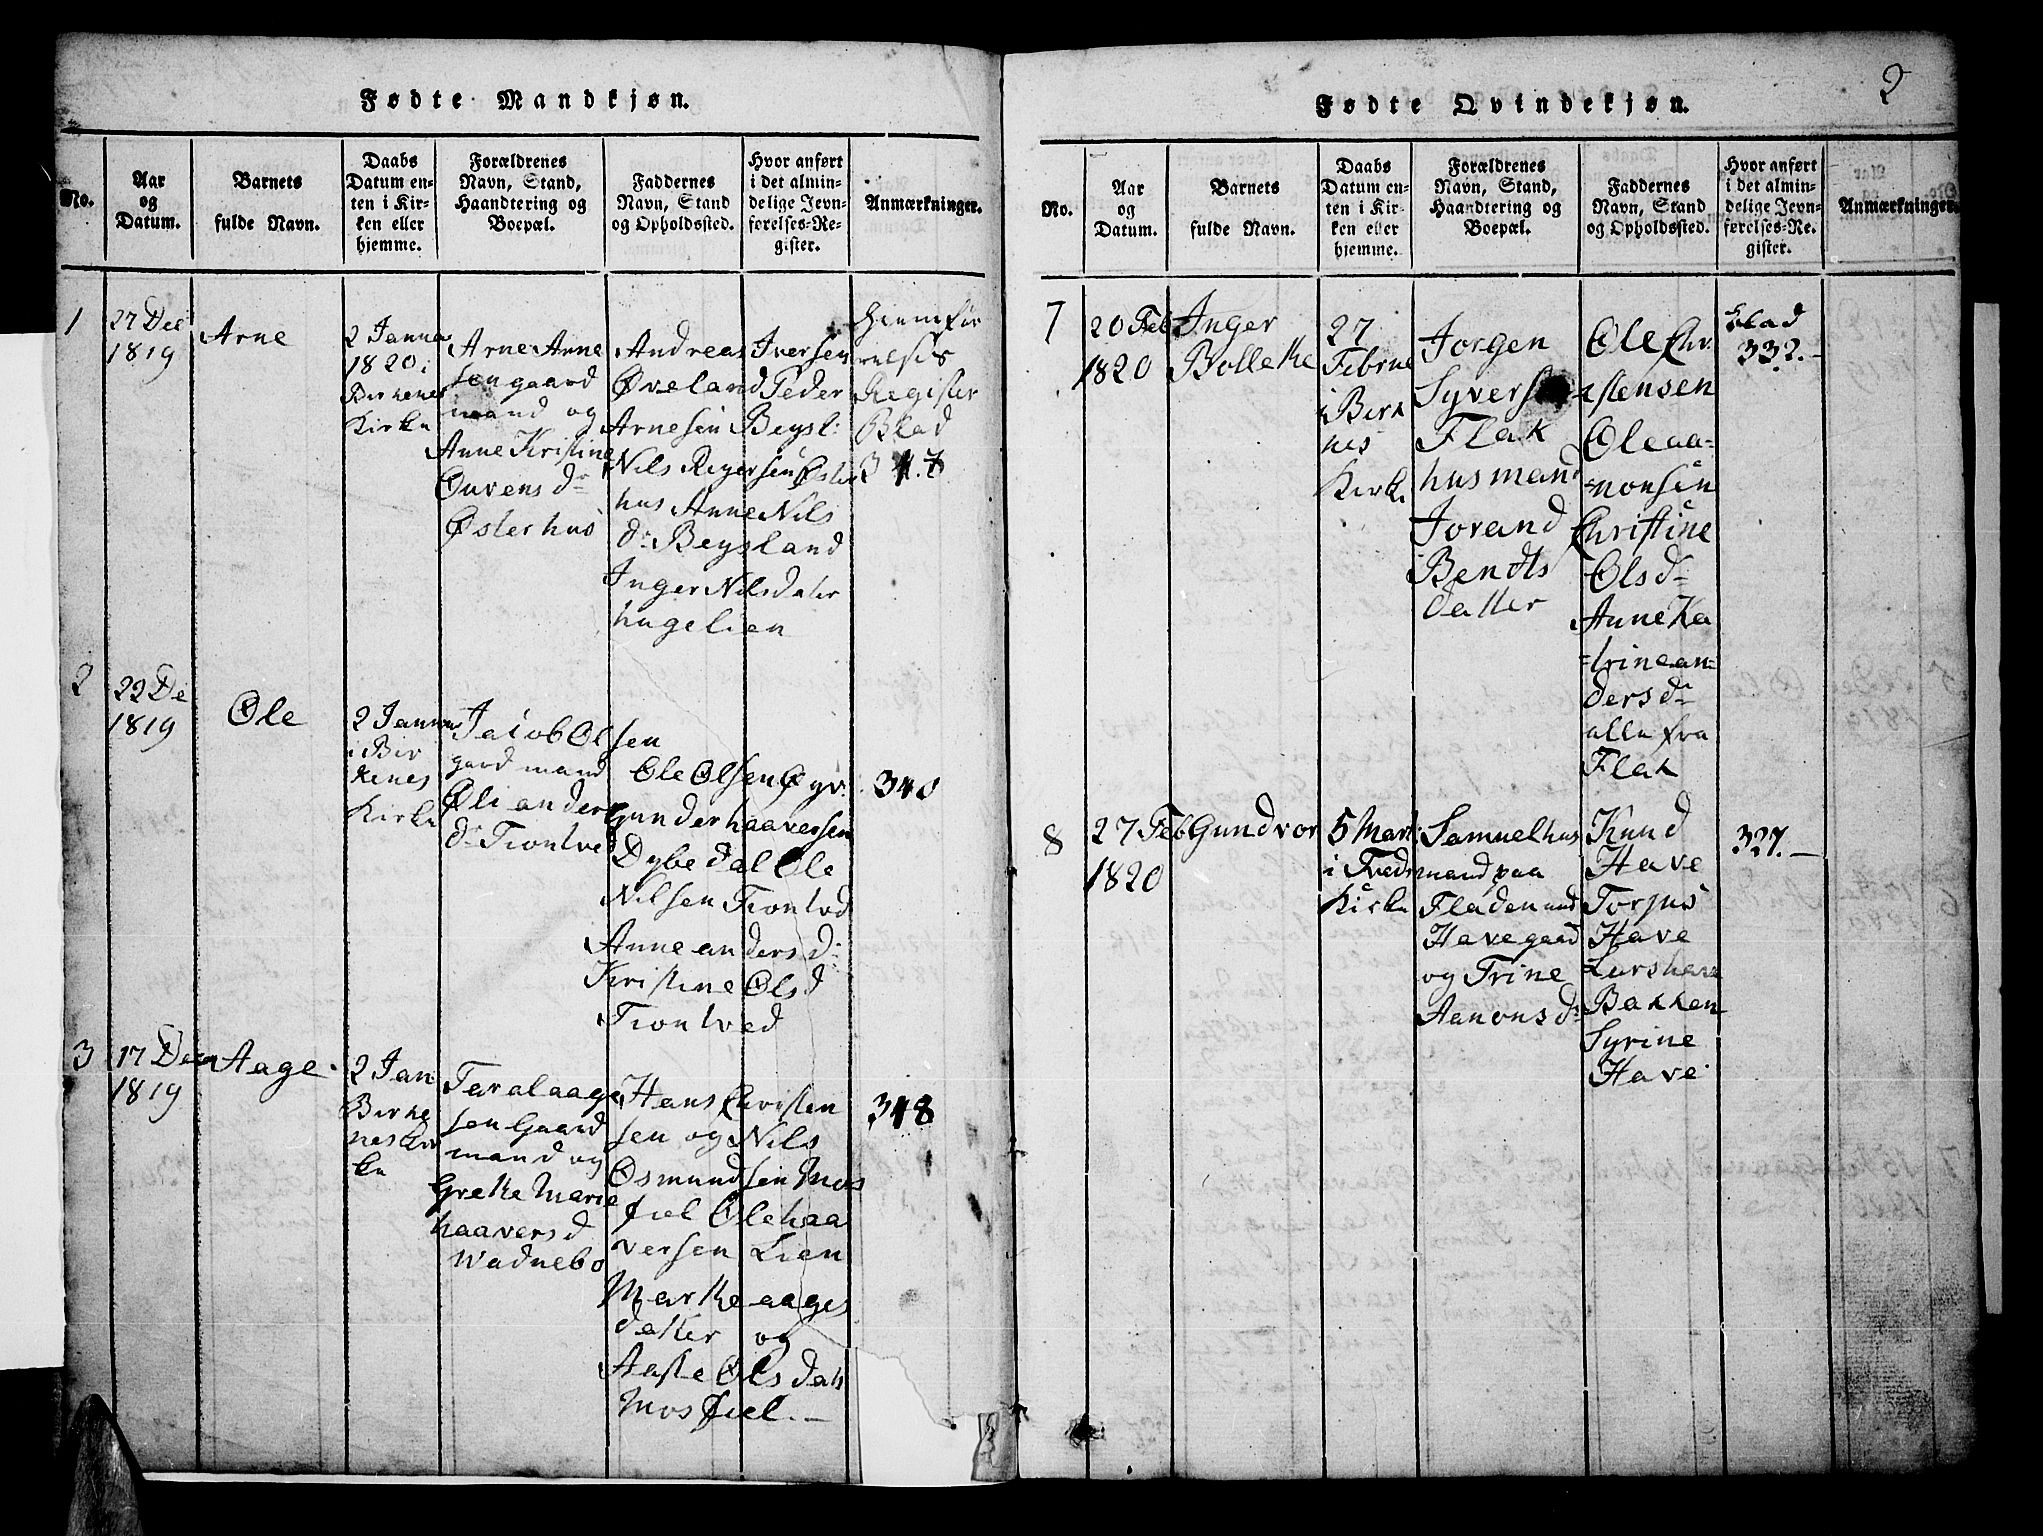 Fødte Mandkjøn.
No.
Aar
og
Datum.
Barnets
fulde Navn.
Daabs
Datum en-
ten i Kir-
ken eller
hjemme.
Forældrenes
Navn, Stand,
Haandtering og
Boepæl.
Faddernes
Navn, Stand
og Opholdssted.
Hvor anført
i det almin-
delige Jevn-
førelses-Re-
gister.
Anmærkninger.
1
27 Dec
1819
Arne
2 Janua
1820 i
Birkenes
Kirke
Arne Arne
sen gaard
mand og
Anne Kristine
Ouvens dr
Østerhus
Andreas Iversen
Øveland Peder
Arnesen Beysl:
Nils Reyersen Øster
hus Anne Nils
dr Beysland
Inger Nilsdater
hugelien
Register
Blad
347
2
22 De
1819
Ole
2 Januar
i Bir
kenes
Kirke
Jacob Olsen
gard mand
Øli anders
dr Tiontved
Ole Olsen
Gunder haaversen
Dybedal Ole
Nilsen Tiontvd
Anne anders d:
Kristine Ols d
Tiontved
340
3
17 Decem
1819
Aage
2 Jan
Birke
nes Kir
ke
Taralaage
sen Gaard
mand og
Grethe Marie
haavers d
Wadnebo
Hans Christen
sen og Nils
Osmundsen Mos
fiel Ole haa
versen Lien
Marthe aages
datter og
Aaste Ols datt
Mosfiel.
348
2
Fødte Qvindekjøn.
No.
Aar
og
Datum.
Barnets
fulde Navn.
Daabs
Datum en-
ten i Kir-
ken eller
hjemme.
Forældrenes
Navn, Stand,
Haandtering og
Boepæl.
Faddernes
Navn, Stand
og Opholdssted.
Hvor anført
i det almin-
delige Jevn-
førelses-Re-
gister.
Anmærkninger.
7
20 Feb
1820
Inger
Bollethe
27
Februe
i Birk
nes
Kirke
Jorgen
Syversen
Flak
husmand
Jorand
Bendts
datter
Ole Chr
istensen
Ole aa=
=nonsen
Christine
Ols d
Anne Ka
=trine an=
ders dr
alle fra
Flak
Blad
332.-
8
27 Feb
1820
Gundvor
5 Mart
i Tveds
Kirke
Samuel hus
mand paa
Fladen und
Have gaard
og Trine
Aanons dr
Knud
Have
Torjus
Have
Lars hans
Bakken
Syrine
Have
327.-